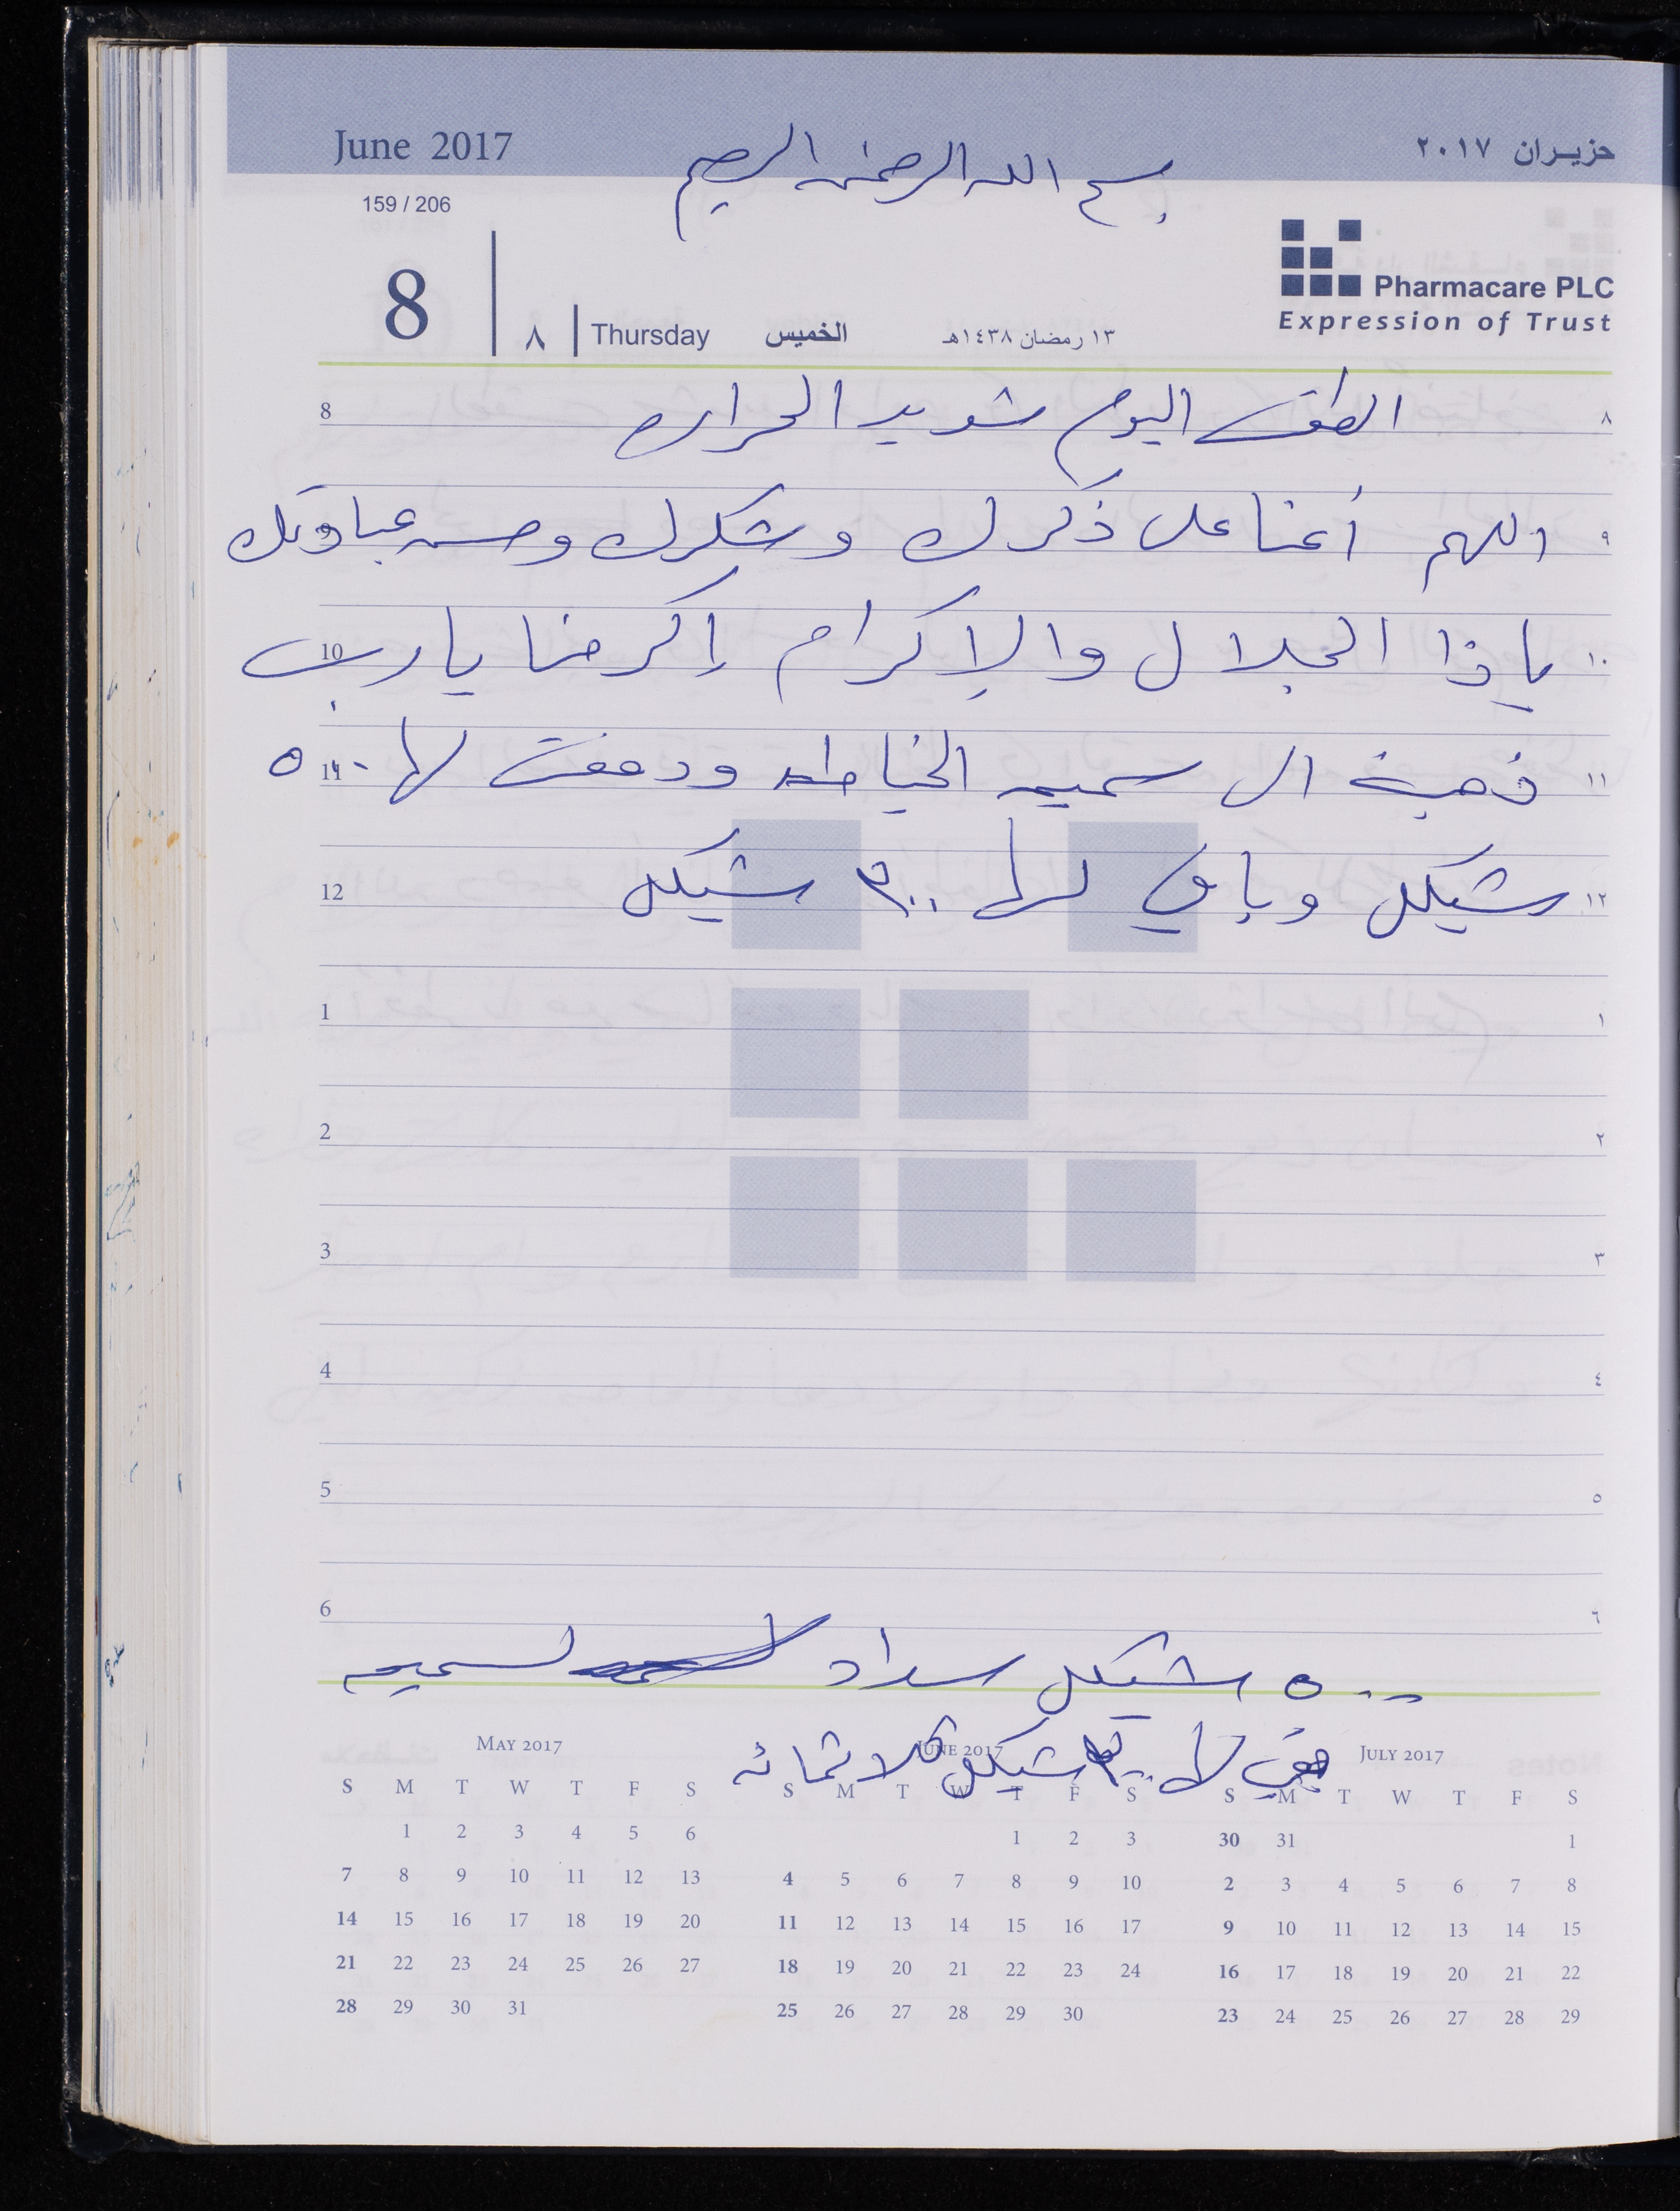 June 2017
بسم الله الرحمن الرحيم
حزيران ٢٠١٧
159 / 206
Pharmacare PLC
Expression of Trust
8 ٨ Thursday الخميس ١٣ رمضان ١٤٣٨هـ
8 الطقس اليوم شديد الحراره ٨
اللهم أعنا على ذكرك وشكرك وحسن عبادتك ٩
10 ياذا الجلال والإكرام إكرمنا يا رب ١٠
11 ذهبة الى سميه الخياطه ودفعت لها ٥٠٠ ١١
12 شيكل وباقي لها ٣٠٠ شيكل ١٢
1 ١
2 ٢
3 ٣
4 ٤
5 ٥
6 ٦
٥٠٠ شيكل سداد لسميه
بقي لها شيكل ثلاثمائه
MAY 2017
S M T W T F S
1 2 3 4 5 6
7 8 9 10 11 12 13
14 15 16 17 18 19 20
21 22 23 24 25 26 27
28 29 30 31
JUNE 2017
S M T W T F S
1 2 3
4 5 6 7 8 9 10
11 12 13 14 15 16 17
18 19 20 21 22 23 24
25 26 27 28 29 30
JULY 2017
S M T W T F S
30 31 1
2 3 4 5 6 7 8
9 10 11 12 13 14 15
16 17 18 19 20 21 22
23 24 25 26 27 28 29